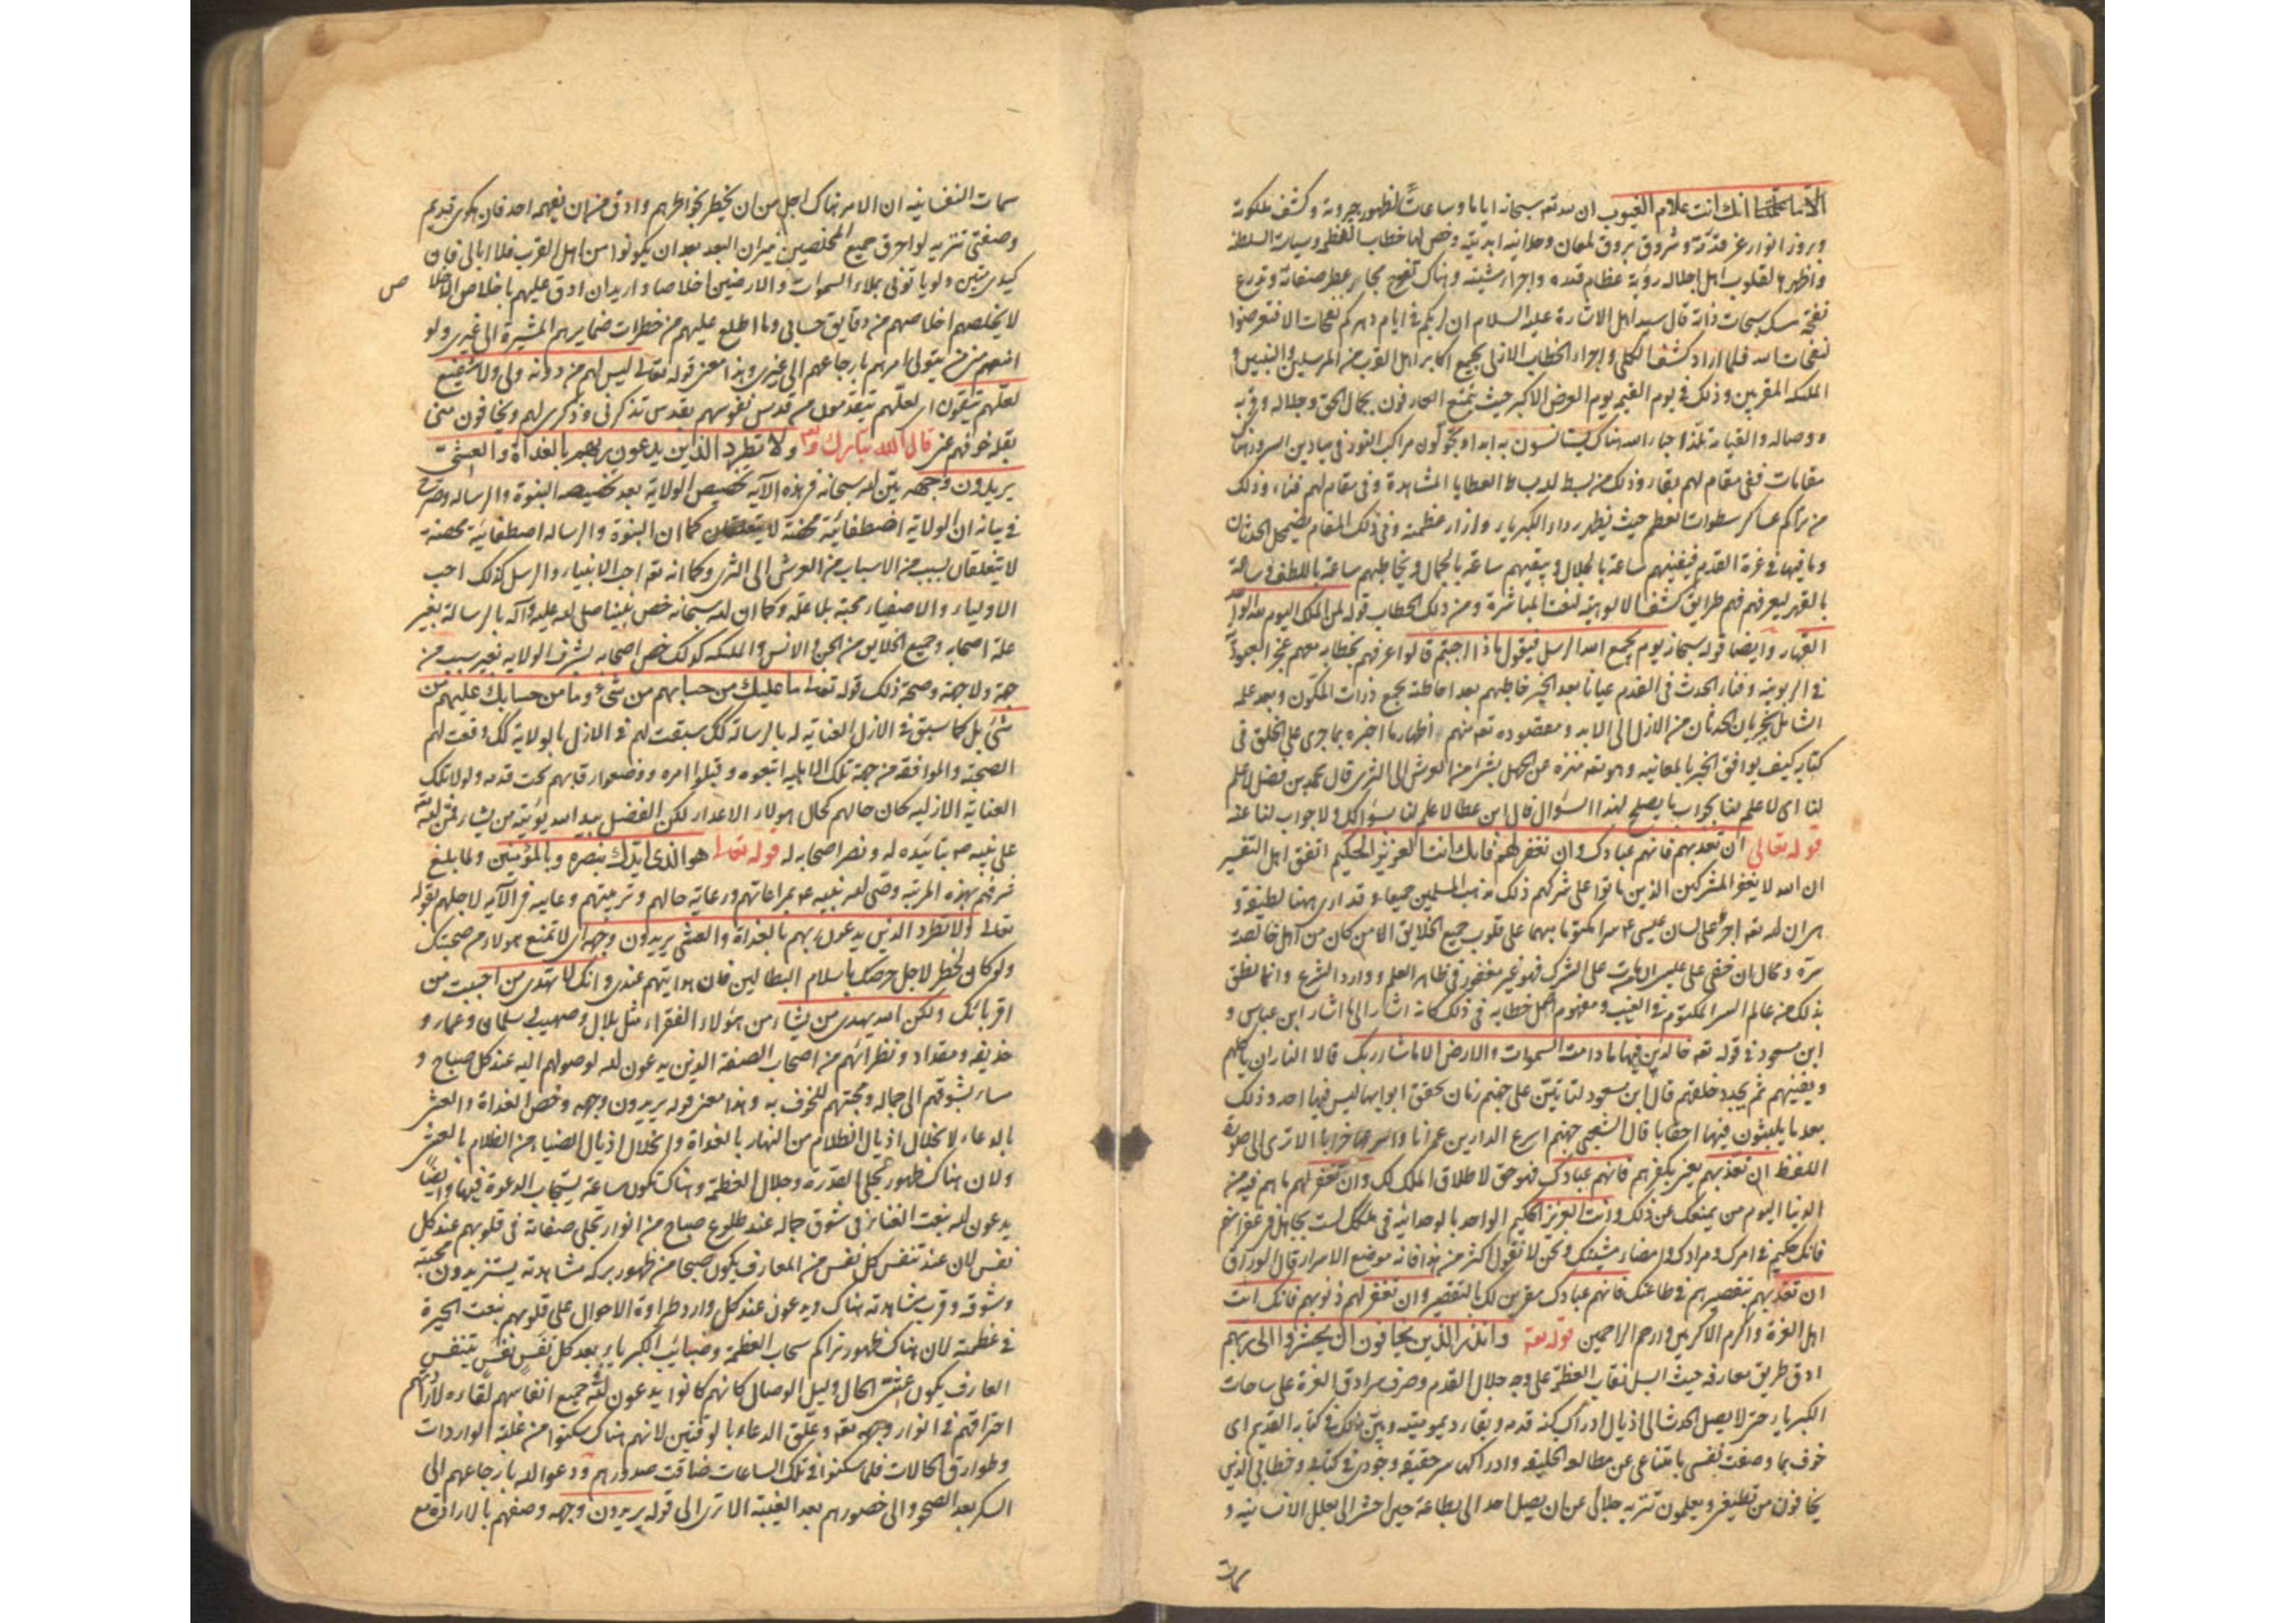 الا ما علمتنا انك انت علام الغيوب ان لله تعه سبحانه اياما وساعات لظهور جبروته وكشف ملكوته
وبروز انوار عز قدمه وشروق بروق لمعان وحدانيه ابديته وخص لها خطاب العظمه وسبات السلطنه
واظهرها لقلوب اهل اجلاله رؤية عظام قدره واجراء مشيته وهناك تفوح مجامر عطر صفاته وتوزع
نفحة مسك سبحات ذاته قال سيد اهل الاشارة عليه السلام ان لربكم في ايام دهركم نفحات الا فتعرضوا
لنفحات الله فلما اراد كشف الكلي واجراء الخطاب الازلي بجميع اكابر اهل القرب من المرسلين والنبيين و
الملئكه المقربين وذلك في يوم القيمه يوم العرض الاكبر حيث يتمتع العارفون بجمال الحق وجلاله وقربه
ووصاله والقيامة بلذ اخبار الله هناك يستانسون به ابدا ويجولون مراكب النور في ميادين السرور هناك
مقامات ففي مقام لهم بقاء وذلك من بسط لهم بساط العطايا المشاهدة وفي مقام لهم فناء وذلك
من تراكم عساكر سطوات العظمه حيث يظهر رداء الكبرياء وازار عظمته وفي ذلك المقام يضمحل الحدثان
وما فيها في عزة القدم فيفنيهم ساعة بالجلال ويبقيهم ساعة بالجمال ويخاطبهم ساعة باللطف وساعة
بالقهر ليعرفهم فهم طرايق كشف الالوهية لنعت المباشرة ومن ذلك الخطاب قوله لمن الملك اليوم لله الواحد
القهار وايضا قوله سبحانه يوم يجمع الله الرسل فيقول ماذا اجبتم قالوا عرفهم بخطابه معهم عجز العبودية
في الربوبيه وفناء الحدث في القدم عيانا بعد الخبر خاطبهم بعد احاطته بجميع ذرات المكون وبعد علمه
الشامل بجريان الحدثان من الازل الى الابد ومعصوده تعه منهم اظهار ما اخبره بما جرى على الخلق في
كتابه كيف يوافق الخبر بالمعاينه وهو تعه منزه عن الجهل بشئ من العرش الى الثرى قال محمد بن فضل لا علم
لنا اي لا علم لنا بجواب ما يصلح لهذا السؤال قال ابن عطا لا علم لنا بسؤالك ولا جواب لنا عنه
قوله تعالى ان تعذبهم فانهم عبادك وان تغفر لهم فانك انت العزيز الحكيم اتفق اهل التفسير
ان الله لا يغفر المشركين الذين ماتوا على شركهم ذلك مذهب المسلمين جميعا وقد ارى ههنا لطيفة و
هي ان لله تعه اجرى على لسان عيسى ع سرا مكتوما مبهما على قلوب جميع الخلايق الا من كان من اهل خالصة
سره وكان ان خفى على عيسى ان من مات على الشرك فهو غير مغفور في ظاهر العلم ووارد الشرع وانما نطق
بذلك من عالم السر المكتوم في الغيب ومفهوم اهل خطابه في ذلك كانه اشار الى ما اشار ابن عباس و
ابن مسعود في قوله تعه خالدين فيها ما دامت السموات والارض الا ما شاء ربك قالا النار ان ياكلهم
ويفنيهم ثم يجدد خلقهم قال ابن مسعود لتاتين على جهنم زمان تخفق ابوابها ليس فيها احد وذلك
بعد ما يلبثون فيها احقابا قال الشعبي جهنم اسرع الدارين عمرانا واسرعهما خرابا الا ترى الى صورة
اللفظ ان تعذبهم يعني بكفرهم فانهم عبادك فهو حق لاطلاق الملك لك وان تغفر لهم ما هم فيه من
الدنيا اليوم من يمنعك عن ذلك وانت العزيز الحكيم الواحد بالوحدانيه في ملكك لست بجاهل في غفرانهم
فانك حكيم في امرك ومرادك وامضاء مشيتك ونحن لا نقول اكثر من هذا فانه موضع الاسرار قال الوراق
ان تعذبهم بتقصيرهم في طاعتك فانهم عبادك مقرين لك بالتقصير وان تغفر لهم ذنوبهم فانك انت
اهل العزة واكرم الاكرمين وارحم الراحمين قوله تعه وانذر الذين يخافون ان يحشروا الى ربهم
ادق طريق معارفه حيث اسبل نقاب العظمه على وجه جلال القدم وصرف سرادق العزة على ساحات
الكبرياء حتى لا يصل الحدث الى اذيال ادراك كنه قدمه وبقاء ديموميته وبين ذلك في كتابه القديم اي
خوف بما وصفت نفسي بامتناعي عن مطالعه الخليقه وادراكهم سر حقيقه وجودي في كتابي وخطابي الذين
يخافون من قطيعتي ويعلمون تنزيه جلالي عن ان يصل احد الي بطاعة حين احشر الى بعلل الانسانيه و
سمات
سمات النفسانيه ان الامر هناك اجل من ان يخطر بخواطرهم وادق من ان يفهمه احد فان مكري قديم
وصفتي تنزيه لو احرق جميع المخلصين بنيران البعد بعد ان يكونوا من اهل القرب فلا ابالي فان
كيدي متين ولو ياتوني بملاء السموات والارضين اخلاصا واريد ان ادق عليهم باخلاص الاخلاص
لا يخلصهم اخلاصهم من دقايق حسابي وما اطلع عليهم من خطرات ضمايرهم المشيرة الى غيري ولو
امنعهم مني من يتولى امرهم بارجاعهم الى غيري وهذا معنى قوله تعالى ليس لهم من دونه ولي ولا شفيع
لعلهم يتقون اي لعلهم يتقدسون من قدس نفوسهم بقدس تذكرني وذكري لهم ويخافون مني
بقلة خوفهم عني قال الله تبارك وتعه ولا تطرد الذين يدعون ربهم بالغداة والعشي
يريدون وجهه بين لله سبحانه في هذه الآيه تخصيص الولاية بعد تخصيصه النبوة والرساله وصرح
في بيانه ان الولاية اصطفائية محضة لا يتعلقان كما ان النبوة والرساله اصطفائية محضة
لا يتعلقان بسبب من الاسباب من العرش الى الثرى وكما انه تعه احب الانبياء والرسل كذلك احب
الاولياء والاصفياء محبة بلا علة وكما ان لله سبحانه خص نبينا صلى الله عليه وآله بالرسالة بغير
علة اصحابه وجميع الخلايق من الجن والانس والملئكه كذلك خص اصحابه بشرف الولايه بغير سبب من
جهة ولا جهة وصحة ذلك قوله تعالى ما عليك من حسابهم من شيء وما من حسابك عليهم من
شئ بل كما سبق في الازل العناية له بالرسالة كذلك سبقت لهم في الازل بالولاية كذلك وقعت لهم
الصحبة والموافقه من جهة تلك الاهليه اتبعوه وقبلوا امره ووضعوا رقابهم تحت قدمه ولولا تلك
العناية الازليه كان حالهم كحال هؤلاء الاعداء لكن الفضل بيد الله يؤتيه من يشاء فمن لله تعه
على نبيه ص بتائيده له ونصر اصحابه له قوله تعالى هو الذي ايدك بنصره وبالمؤمنين ولما بلغ
شرفهم بهذه المرتبه وصى لله نبيه ع بمراعاتهم ورعاية حالهم وتربيتهم وعاتبه في الآيه لاجلهم بقوله
تعالى ولا تطرد الذين يدعون ربهم بالغداة والعشي يريدون وجهه اي لا تمنع هؤلاء من صحبتك
ولو كان لخطر لاجل حرصك باسلام البطالين فان هدايتهم عندي وانك لا تهدي من احببت من
اقربائك ولكن الله يهدي من يشاء من هؤلاء الفقراء مثل بلال وصهيب وسلمان وعمار و
حذيفه ومقداد ونظرائهم من اصحاب الصفة الذين يدعون لله لوصولهم اليه عند كل صباح و
مساء بشوقهم الى جماله ومحبتهم للخوف به وهذا معنى قوله يريدون وجهه وخص الغداة والعشي
بالدعاء لانحلال اذيال الظلام من النهار بالغداة وانحلال اذيال الضياء من الظلام بالعشي
ولان هناك ظهور تجلى القدرة وجلال العظمة وهناك تكون ساعة يستجاب الدعوة فيها وايضا
يدعون لله بنعت الغنائر في شوق جماله عند طلوع صباح من انوار تجلى صفاته في قلوبهم عند كل
نفس لان عند تنفس كل نفس من المعارف يكون صبحا من ظهور بركه مشاهدته يستزيدون محبته
وشوقه وقرب مشاهدته هناك ويدعون عند كل وارد طراوة الاحوال على قلوبهم بنعت الحيرة
في عظمته لان هناك ظهور تراكم سحاب العظمة وضبائب الكبرياء وبعد كل نفس نفس يتنفس
العارف يكون عشي الحال وليل الوصال كانهم كانوا يدعون لله جميع انفاسهم لقاءه لارادتهم
احتراقهم في انوار وجهه تعه وعلق الدعاء بالوقتين لانهم هناك سكتوا من غلبة الواردات
وطوارق الحالات فلما سكنوا في تلك الساعات ضاقت صدورهم ودعوا لله بارجاعهم الى
السكر بعد الصحو والى حضورهم بعد الغيبة الا ترى الى قوله يريدون وجهه وصفهم بالارادة مع